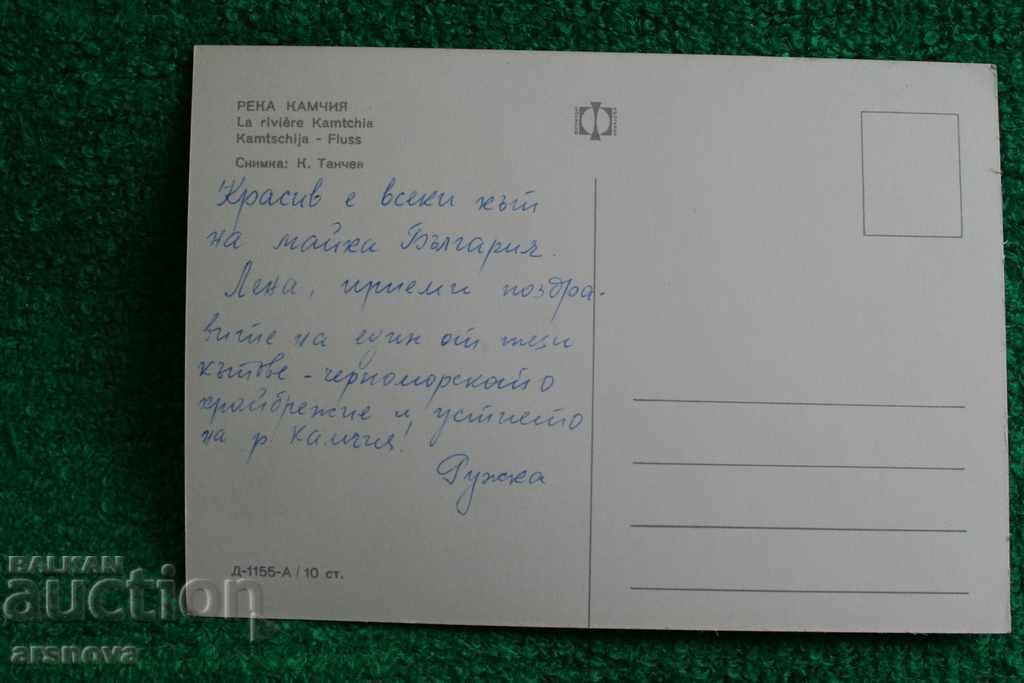 РЕКА КАМЧИЯ
La rivière Kamtchia
Kamtschija - Fluss
Снимка: К. Танчев
Красив е всеки кът
на майка България.
Лена, приеми поздра-
вите на един от тези
кътове - черноморското
крайбрежие и устието
на р. Камчия!
Ружка
Д-1155-А / 10 ст.
BALKAN
auction
arsnova